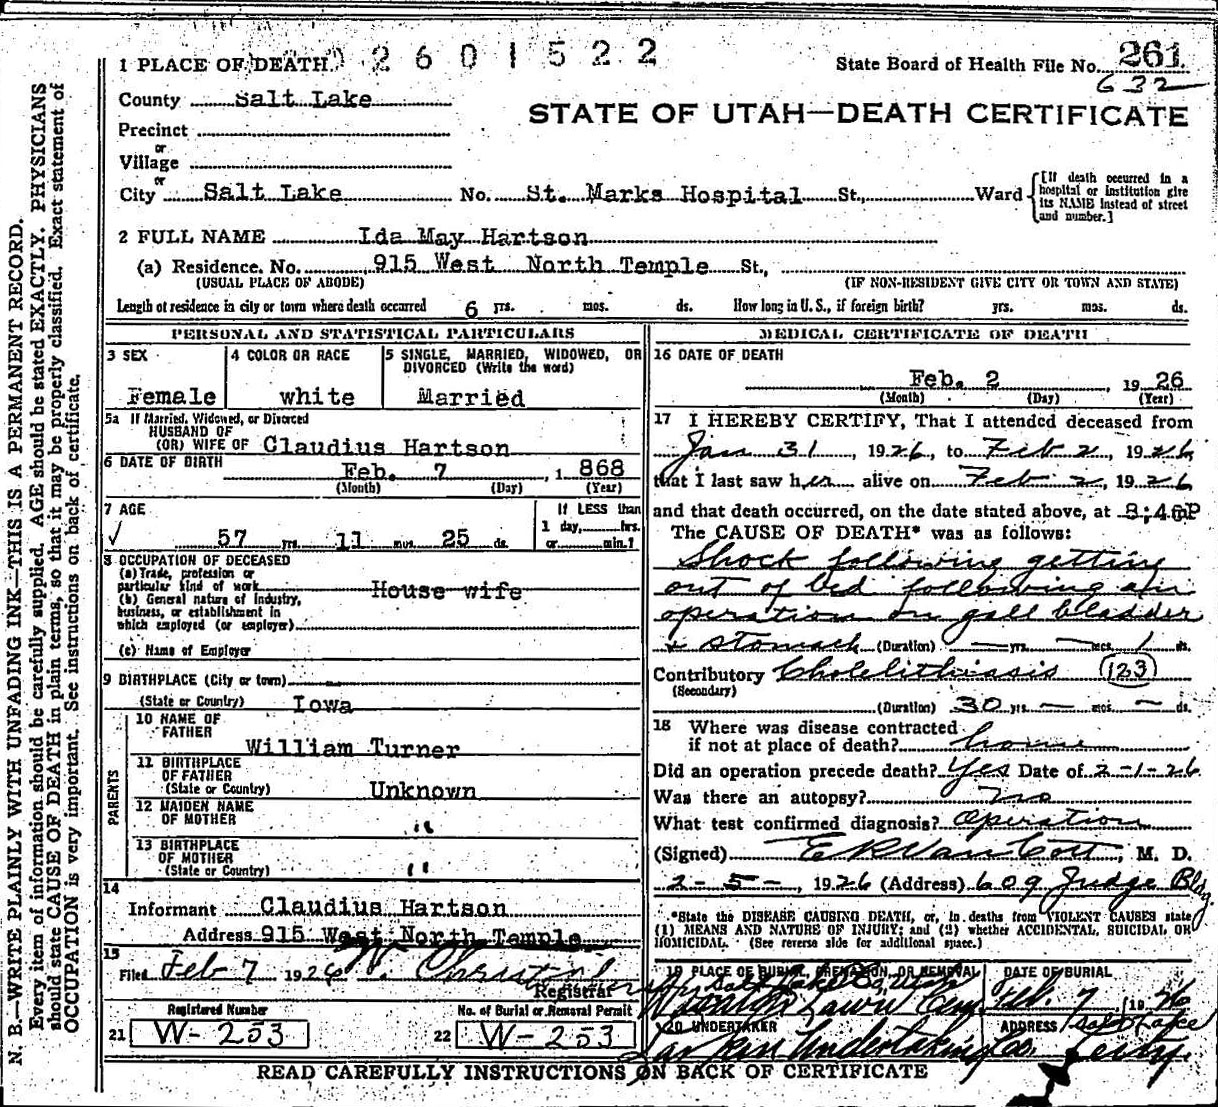 N. B.—WRITE PLAINLY WITH UNFADING INK—THIS IS A PERMANENT RECORD.
Every item of information should be carefully supplied. AGE should be stated EXACTLY. PHYSICIANS
should state CAUSE OF DEATH in plain terms, so that it may be properly classified. Exact statement of
OCCUPATION is very important. See instructions on back of certificate.
2601522
1 PLACE OF DEATH
State Board of Health File No. 261
632
County Salt Lake
STATE OF UTAH—DEATH CERTIFICATE
Precinct
or
Village
or
City Salt Lake No. St. Marks Hospital St., Ward
[If death occurred in a
hospital or institution give
its NAME instead of street
and number.]
2 FULL NAME Ida May Hartson
(a) Residence. No. 915 West North Temple St.,
(USUAL PLACE OF ABODE) (IF NON-RESIDENT GIVE CITY OR TOWN AND STATE)
Length of residence in city or town where death occurred 6 yrs. mos. ds. How long in U. S., if foreign birth? yrs. mos. ds.
PERSONAL AND STATISTICAL PARTICULARS
3 SEX
Female
4 COLOR OR RACE
white
5 SINGLE, MARRIED, WIDOWED, OR
DIVORCED (Write the word)
Married
5a If Married, Widowed, or Divorced
HUSBAND OF
(OR) WIFE OF Claudius Hartson
6 DATE OF BIRTH
Feb. 7, 1868
(Month) (Day) (Year)
7 AGE
✓ 57 yrs. 11 mos. 25 ds.
If LESS than
1 day, hrs.
or min.?
8 OCCUPATION OF DECEASED
(a) Trade, profession or
particular kind of work House wife
(b) General nature of industry,
business, or establishment in
which employed (or employer)
(c) Name of Employer
9 BIRTHPLACE (City or town) —
(State or Country) Iowa
PARENTS
10 NAME OF
FATHER
William Turner
11 BIRTHPLACE
OF FATHER
(State or Country) Unknown
12 MAIDEN NAME
OF MOTHER "
13 BIRTHPLACE
OF MOTHER
(State or Country) "
14
Informant Claudius Hartson
Address 915 West North Temple
15
Filed Feb 7 1926
Registrar
Registered Number
21 W-253
No. of Burial or Removal Permit
22 W-253
MEDICAL CERTIFICATE OF DEATH
16 DATE OF DEATH
Feb. 2, 1926
(Month) (Day) (Year)
17 I HEREBY CERTIFY, That I attended deceased from
Jan 31, 1926, to Feb 2, 1926
that I last saw her alive on Feb 2, 1926
and that death occurred, on the date stated above, at 8;40P
The CAUSE OF DEATH* was as follows:
Shock following getting
out of bed following an
operation on gall bladder
& stomach (Duration) — yrs. — mos. 1 ds.
Contributory Cholelithiasis (123)
(Secondary)
(Duration) 30 yrs. — mos. — ds.
18 Where was disease contracted
if not at place of death? home
Did an operation precede death? Yes Date of 2-1-26
Was there an autopsy? no
What test confirmed diagnosis? Operation
(Signed) E R Van Cott, M. D.
2-5-, 1926 (Address) 609 Judge Bldg.
*State the DISEASE CAUSING DEATH, or, in deaths from VIOLENT CAUSES state
(1) MEANS AND NATURE OF INJURY; and (2) whether ACCIDENTAL, SUICIDAL OR
HOMICIDAL. (See reverse side for additional space.)
19 PLACE OF BURIAL, CREMATION, OR REMOVAL
Salt Lake Co, Utah
Lawn Cem
DATE OF BURIAL
Feb. 7 1926
20 UNDERTAKER
Larkin Undertaking Co.
ADDRESS Salt Lake
City.
READ CAREFULLY INSTRUCTIONS ON BACK OF CERTIFICATE